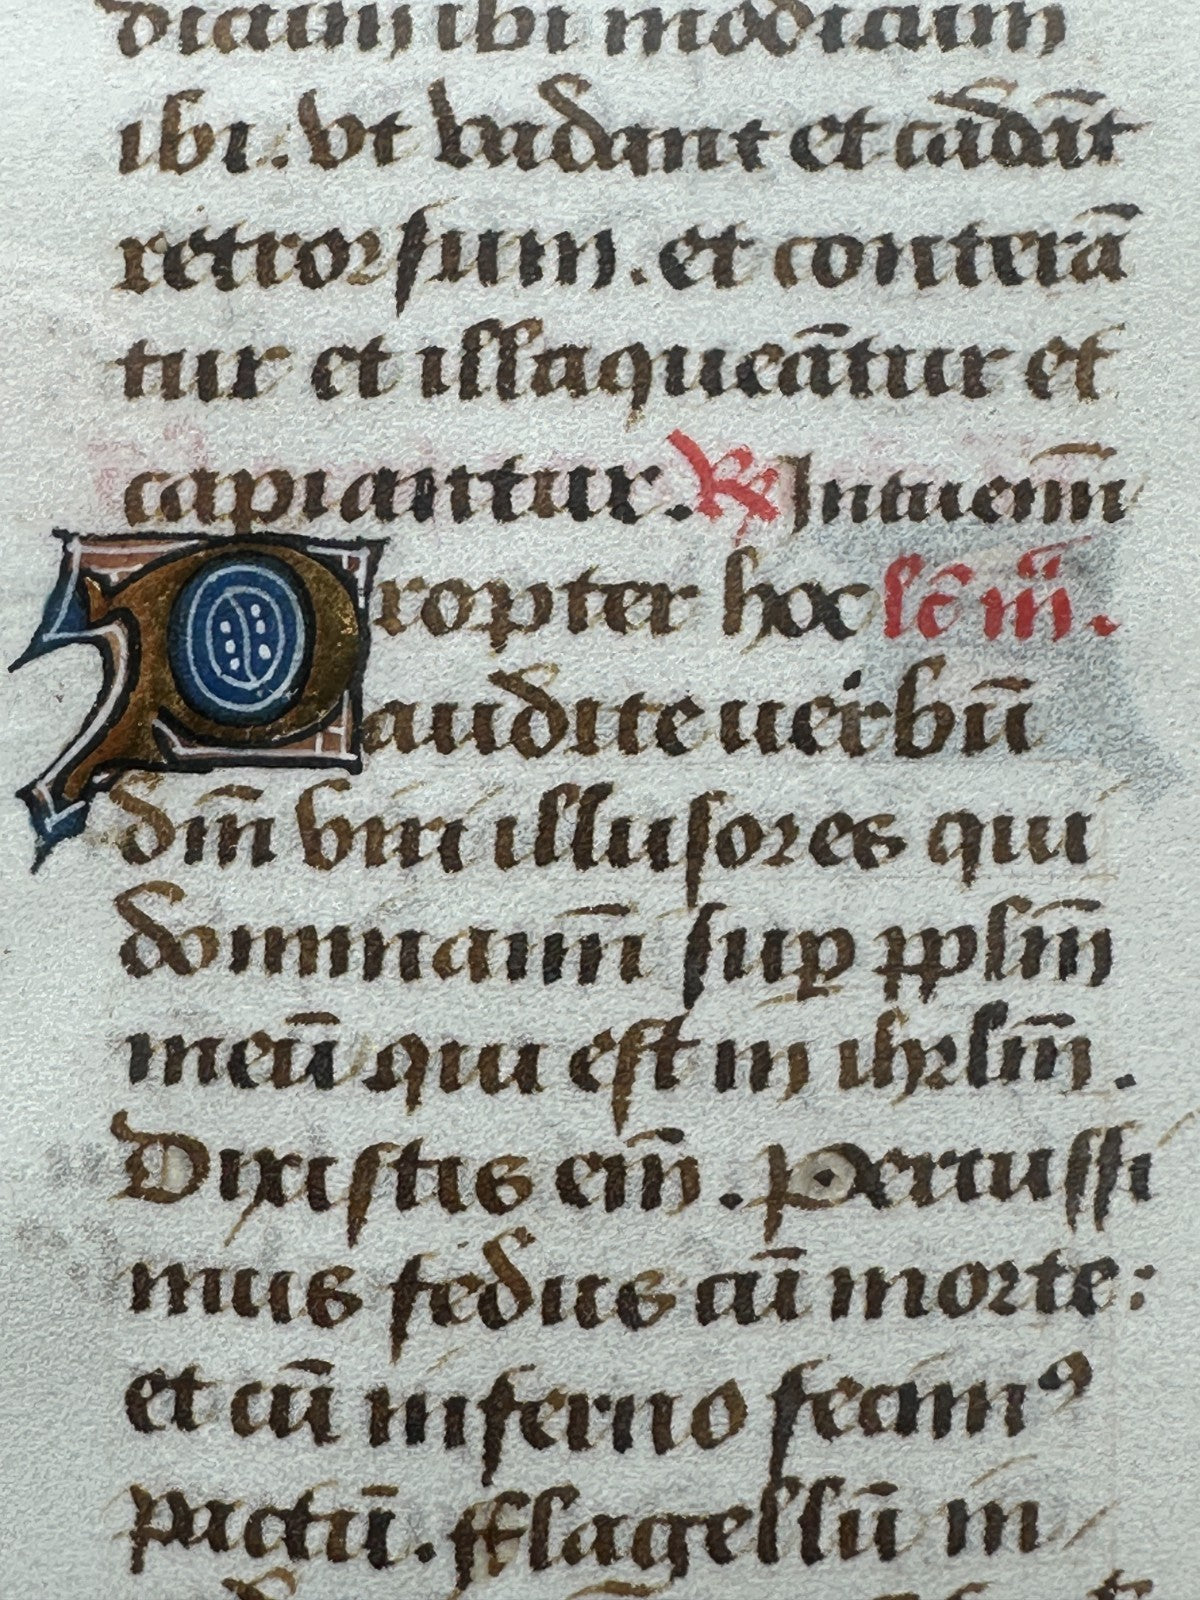 dicam ibi modicum
ibi. vt vadant et cādāt
retrorsum. et conterā
tur et illaqueātur et
capiantur. ℟ Intuemi̅
Propter hoc lc̄ iii.
audite uerbū
dn̄i viri illusores qui
dominami̅ suꝑ pp̅lm̅
meū qui est in ihrlm̅.
Dixistis em̅. Percussi
mus fedus cū morte:
et cū inferno fecimꝰ
pactū. Flagellū in